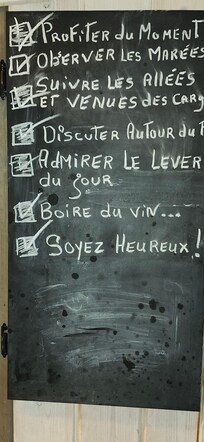 Profiter du Moment
Observer les Marées
Suivre les Allées
et venues des
Discuter Autour du
Admirer le Lever
du jour
Boire du vin...
Soyez Heureux!